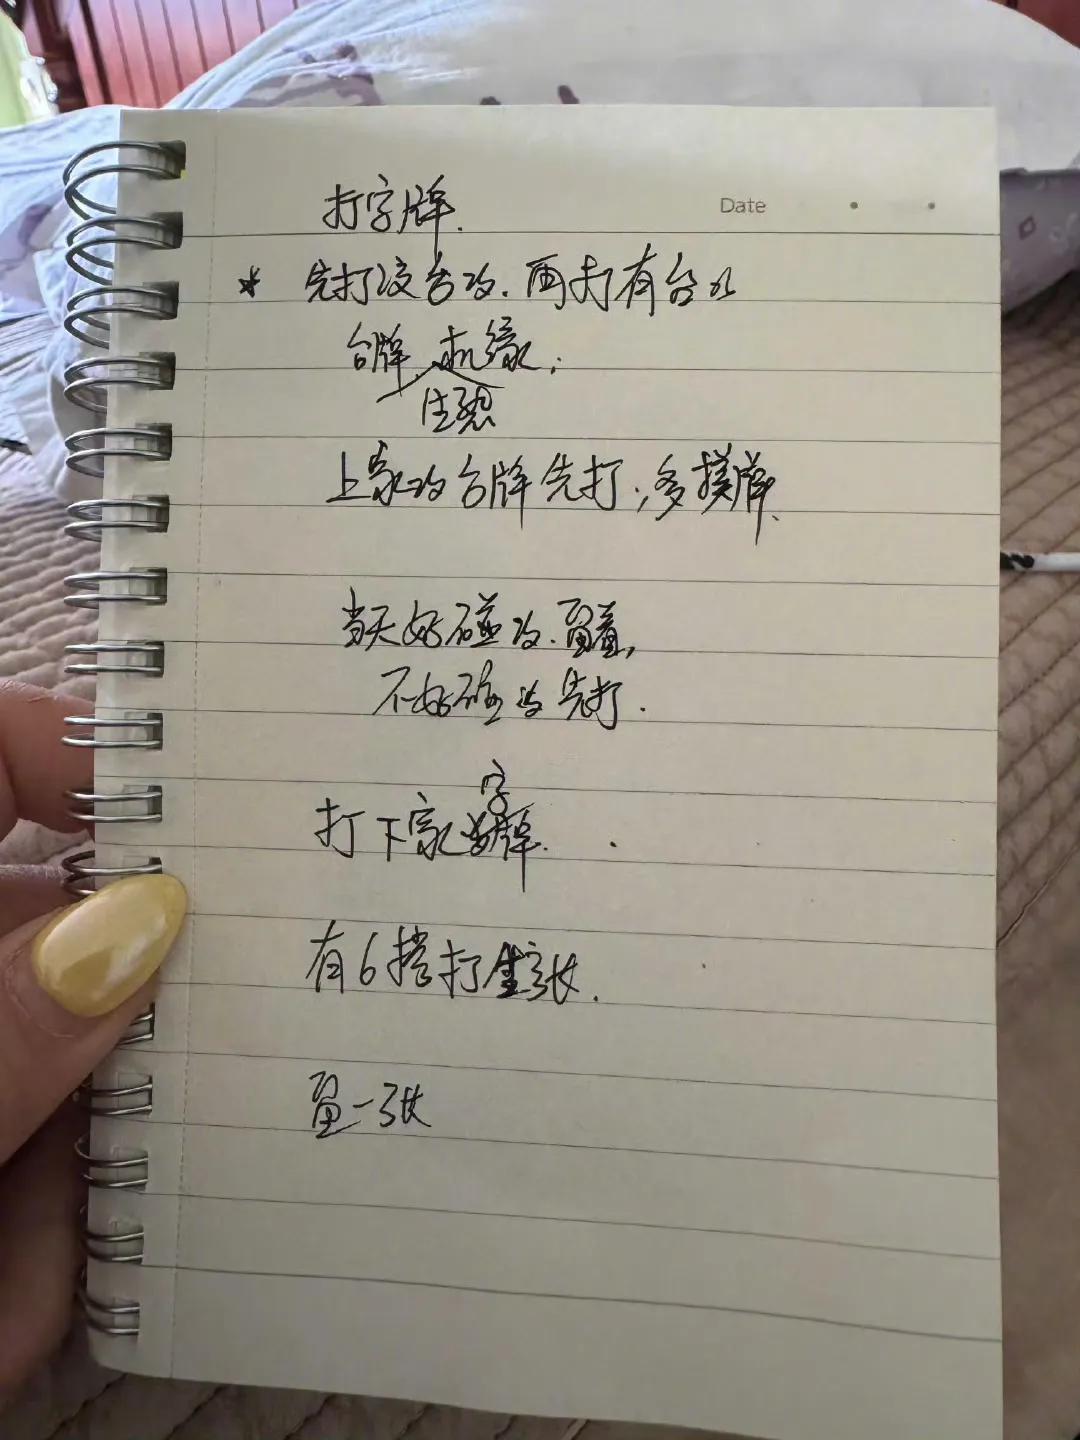 打字牌.
Date
* 先打没台的.再打有台的
台牌 机缘;
生熟
上家的台牌先打,多摸牌.
当天好碰的.留着,
不好碰的先打.
字
打下家的牌.
有6搭打生张.
留一张